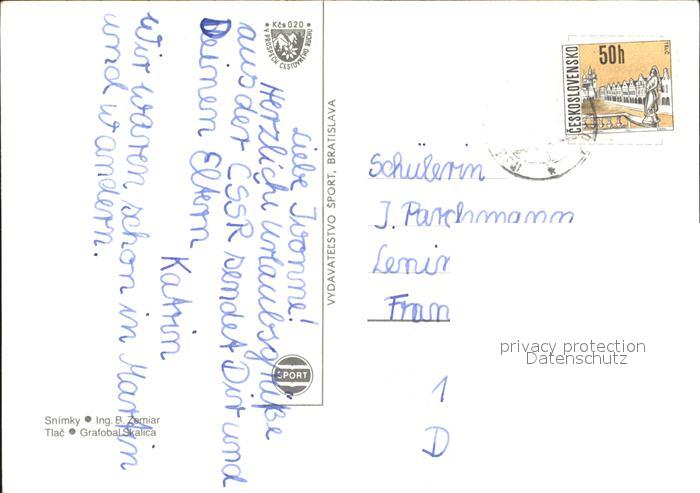 Liebe Ivonne!
Herzliche Urlaubsgrüße
aus der CSSR sendet Dir und
Deinen Eltern
Katrin
Wir waren schon in Martin
und wandern.
Kčs 0.20
V PROSPECH CESTOVNÉHO RUCHU
VYDAVATEĽSTVO ŠPORT, BRATISLAVA
ŠPORT
Snímky ● Ing. B. Zemiar
Tlač ● Grafobal Skalica
ČESKOSLOVENSKO
50h
TELČ
Schülerin
I. Parchmann
Lenin
Fran
1
D
privacy protection
Datenschutz